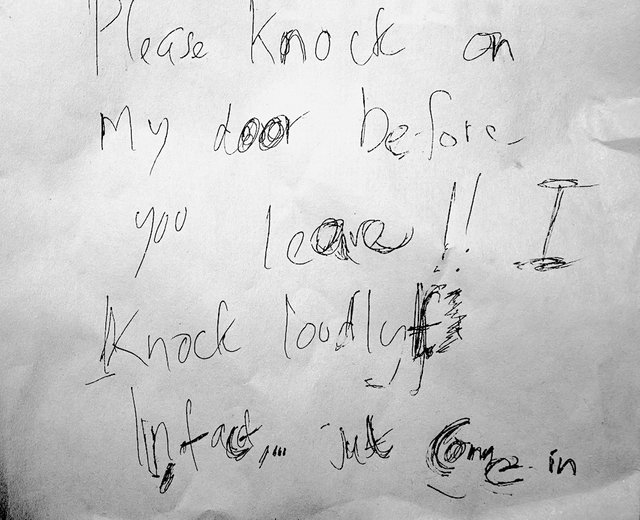 Please Knock on
my door before
you leave!! I
Knock loudly
In fact,... just Come in